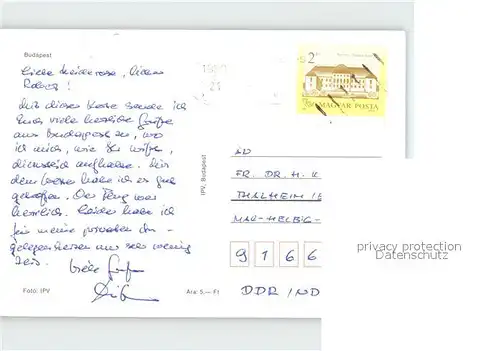 Budapest
Liebe Heiderose, lieber
Robert!
Mit dieser Karte sende ich
Euch viele herzliche Grüße
aus Budapest zu, wo
ich mich, wie Ihr wißt,
dienstlich aufhalte. Mit
dem Wetter habe ich es gut
getroffen. Der Flug war
herrlich. Leider habe ich
für meine privaten An-
gelegenheiten nur sehr wenig
Zeit.
Viele Grüße
Foto: IPV
Ára: 5,— Ft
IPV, Budapest
2 Ft
MAGYAR POSTA
FR. DR. H. K
THALHEIM / E
MAX-HELBIG-
9 1 6 6
DDR / ND
privacy protection
Datenschutz